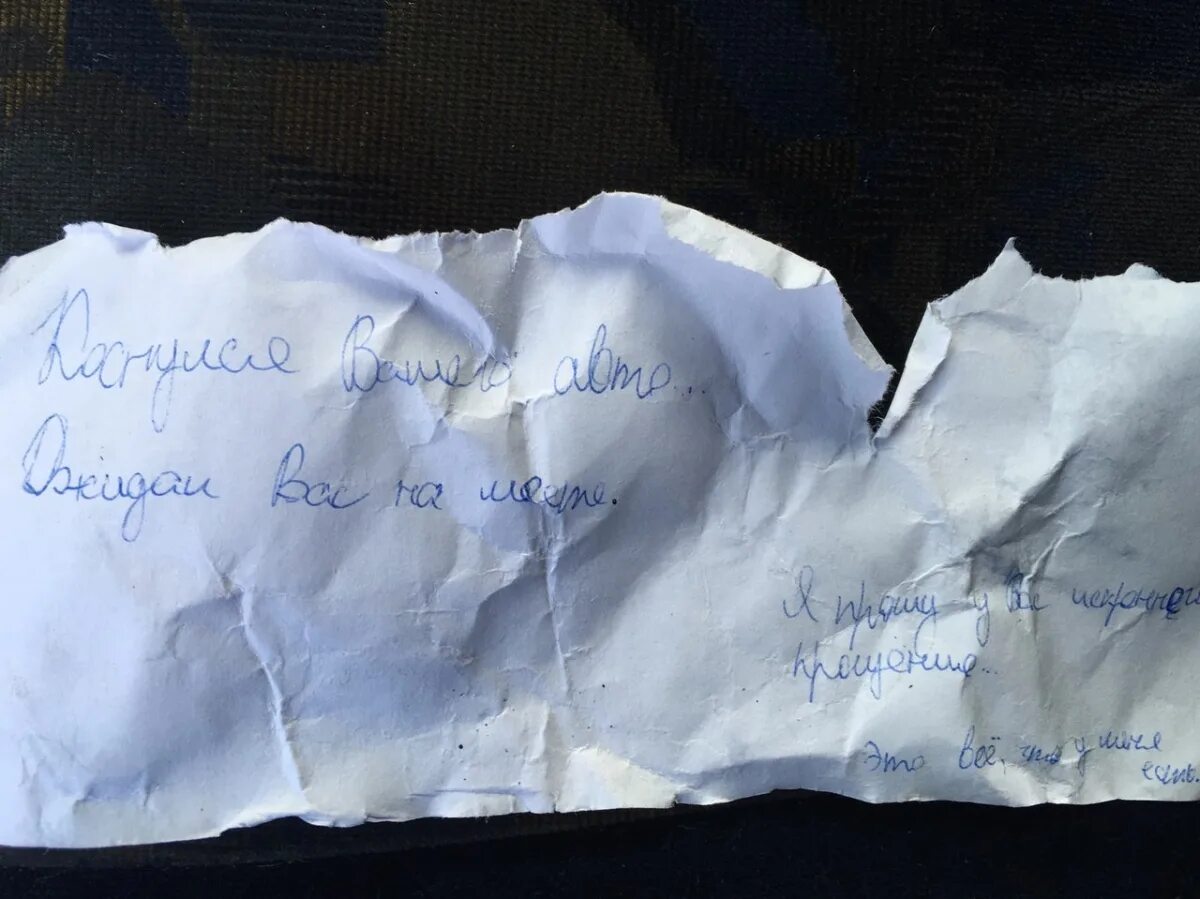 Коснулся Вашего авто...
Ожидал Вас на месте.
Я прошу у Вас искреннего
прощения...
Это всё, что у меня
есть.